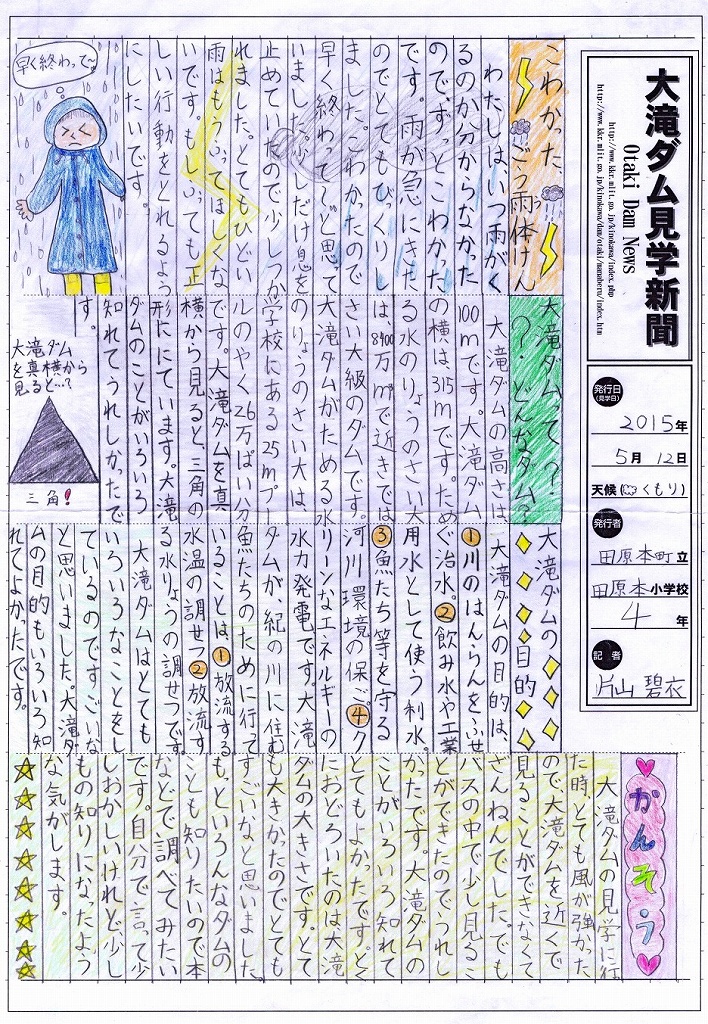 大滝ダム見学新聞
Otaki Dam News
http://www.kkr.mlit.go.jp/kinokawa/index.php
http://www.kkr.mlit.go.jp/kinokawa/dam/otaki/manaberu/index.htm
発行日
(見学日)
2015年
5月 12日
天候(くもり)
発行者
田原本町立
田原本小学校
4年
記者
片山 碧衣
こわかった、
ごう雨体けん
わたしは、いつ雨がく
るのか分からなかった
のでずっとこわかった
です。雨が急にきた
のでとてもびっくりし
ました。こわかったので
早く終わって〜と思って
いました。少しだけ息を
止めていたので少しつか
れました。とてもひどい
雨はもうふってほしくな
いです。もしふっても正
しい行動をとれるよう
にしたいです。
早く終わって〜
大滝ダムって?
?・どんなダム?
大滝ダムの高さは
100mです。大滝ダム
の横は315mです。ため
る水のりょうのさい大
は、8400万m³で近きでは
さい大級のダムです。
大滝ダムがためる水
のりょうのさい大は、
学校にある25mプー
ルのやく26万ぱい分
です。大滝ダムを真
横から見ると、三角の
形ににています。大滝
ダムのことがいろいろ
知れてうれしかったで
す。
大滝ダム
を真横から
見ると…?
三角!
大滝ダムの
目的
大滝ダムの目的は、
①川のはんらんをふせ
ぐ治水。②飲み水や工業
用水として使う利水。
③魚たち等を守る
河川環境の保ご。④ク
リーンなエネルギーの
水力発電です。大滝
ダムが、紀の川に住む
魚たちのために行って
いることは、①放流する
水温の調せつ②放流す
る水りょうの調せつです。
大滝ダムはとても
いろいろなことをし
ているのですごいな
と思いました。大滝ダ
ムの目的もいろいろ知
れてよかったです。
かんそう
大滝ダムの見学に行っ
た時、とても風が強かった
ので大滝ダムを近くで
見ることができなくて
ざんねんでした。でも
バスの中で少し見るこ
とができたのでうれし
かったです。大滝ダムの
ことがいろいろ知れて
とてもよかったです。とく
におどろいたのは大滝
ダムの大きさです。とて
も大きかったのでとても
すごいなと思いました。
もっといろんなダムの
ことも知りたいので本
などで調べてみたい
です。自分で言って少
しおかしいけれど、少し
もの知りになったよう
な気がします。